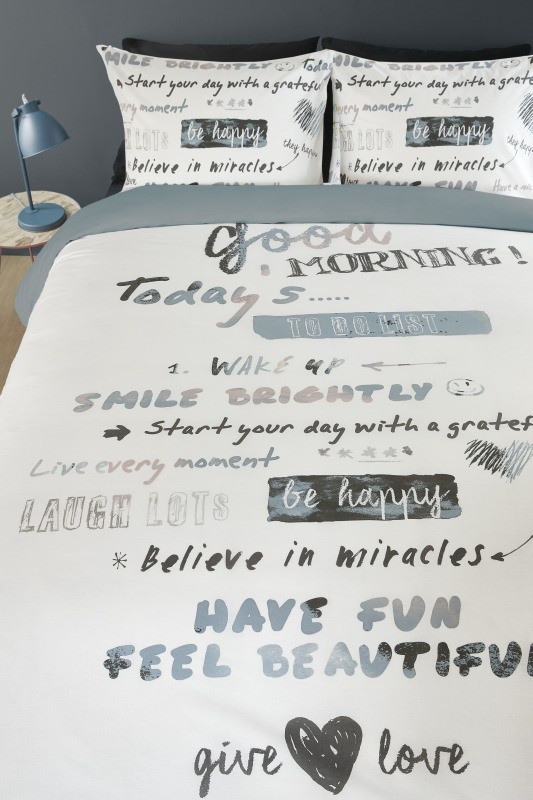 MILE BRIGHTLY Today
Start your day with a grateful
every moment
LOTS be happy they happen
*Believe in miracles
HAVE FUN
SMILE BRIGHTLY
Start your day with a grate
every moment
LOTS be happy
*Believe in miracles
HAVE FUN Have a ni
good
MORNING!
Today's.....
TO DO LIST
1. WAKE UP
SMILE BRIGHTLY
Start your day with a gratef
Live every moment
LAUGH LOTS be happy
* Believe in miracles
HAVE FUN
FEEL BEAUTIFU
give love